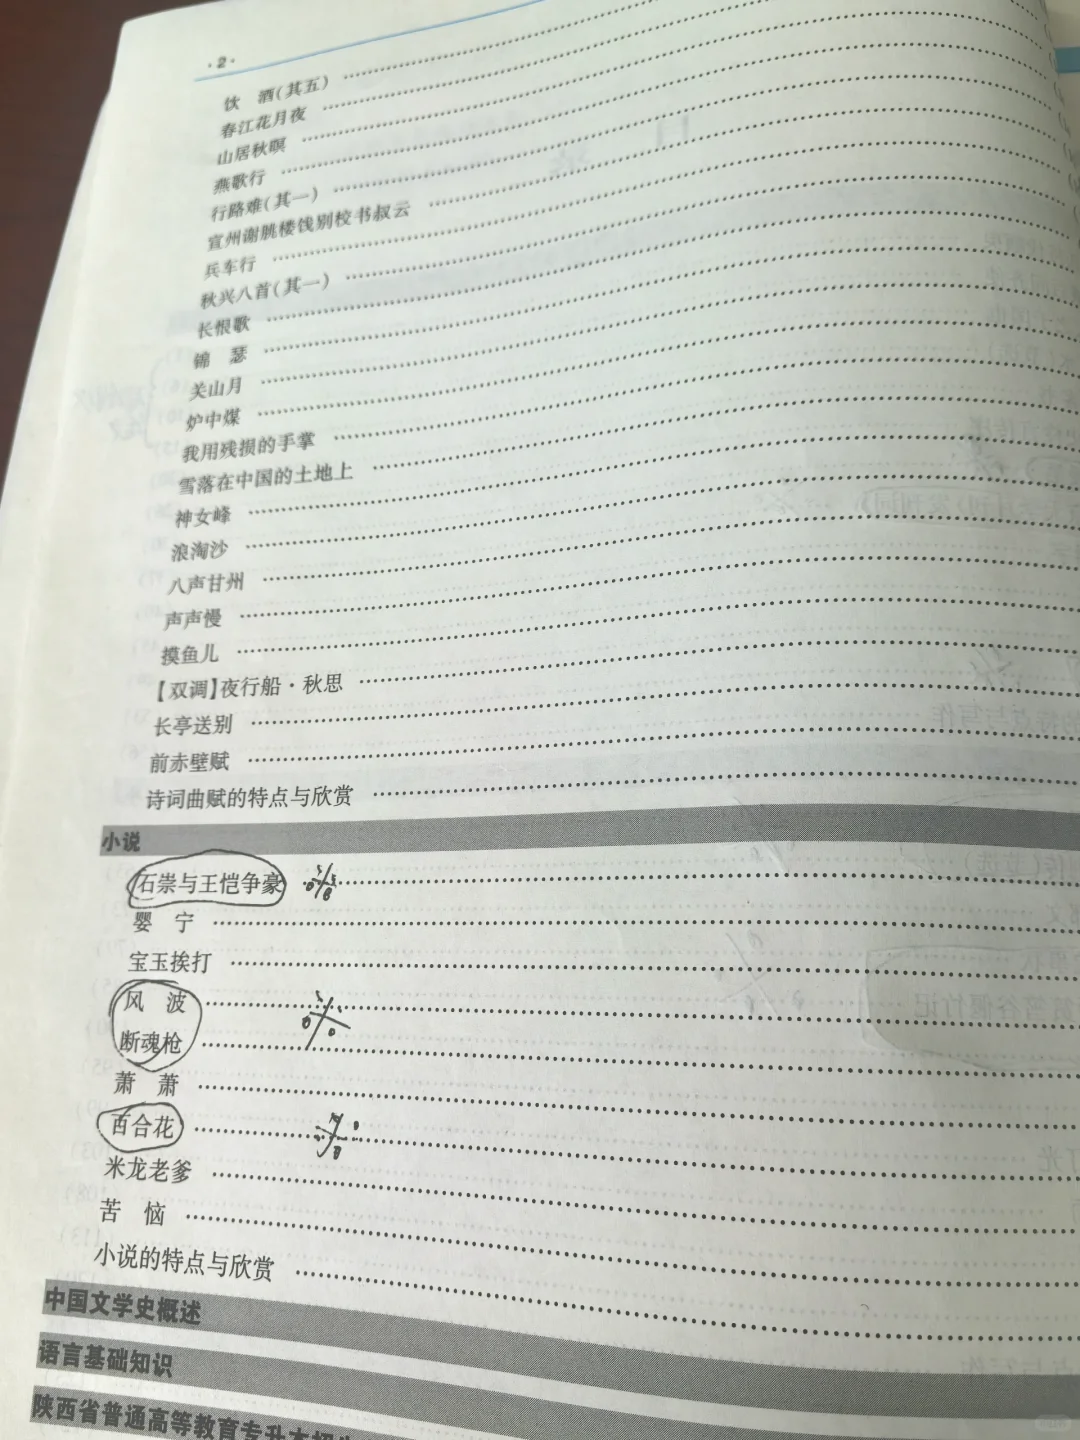 · 2 ·
饮 酒(其五)
春江花月夜
山居秋暝
燕歌行
行路难(其一)
宣州谢朓楼饯别校书叔云
兵车行
秋兴八首(其一)
长恨歌
锦 瑟
关山月
炉中煤
我用残损的手掌
雪落在中国的土地上
神女峰
浪淘沙
八声甘州
声声慢
摸鱼儿
【双调】夜行船·秋思
长亭送别
前赤壁赋
诗词曲赋的特点与欣赏
小说
石崇与王恺争豪
婴 宁
宝玉挨打
风 波
断魂枪
萧 萧
百合花
米龙老爹
苦 恼
小说的特点与欣赏
中国文学史概述
语言基础知识
陕西省普通高等教育专升本招生